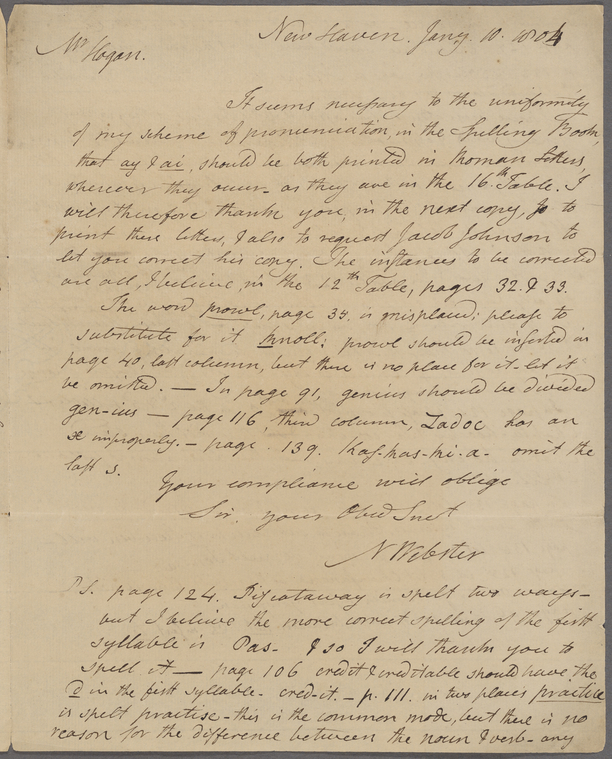 New Haven. Jany. 10. 1804
Mr Hogan.
It seems necessary to the uniformity
of my scheme of pronunciation, in the Spelling Book,
that ay & ai, should be both printed in Roman letters,
wherever they occur - as they are in the 16th Table. I
will therefore thank you, in the next copy, to
print these letters, & also to request Jacob Johnson to
let you correct his copy. The instances to be corrected
are all, I believe, in the 12th Table, pages 32. & 33.
The word prowl, page 34. is misplaced; please to
substitute for it knoll; prowl should be inserted in
page 40, last column, but there is no place for it - let it
be omitted. — In page 91, genius should be divided
gen-ius — page 116, third column, Zadoc has an
improperly. - page. 139. Kas-kas-ki-a- omit the
last s.
Your compliance will oblige
Sir, your Obed Servt
N Webster
PS. page 124. Piscataway is spelt two ways -
but I believe the more correct spelling of the first
syllable is Pas- & so I will thank you to
spell it — page 106 credit & creditable should have the
d in the first syllable - cred-it. — p. 111. in two places practice
is spelt practise - this is the common mode, but there is no
reason for the difference between the noun & verb - any